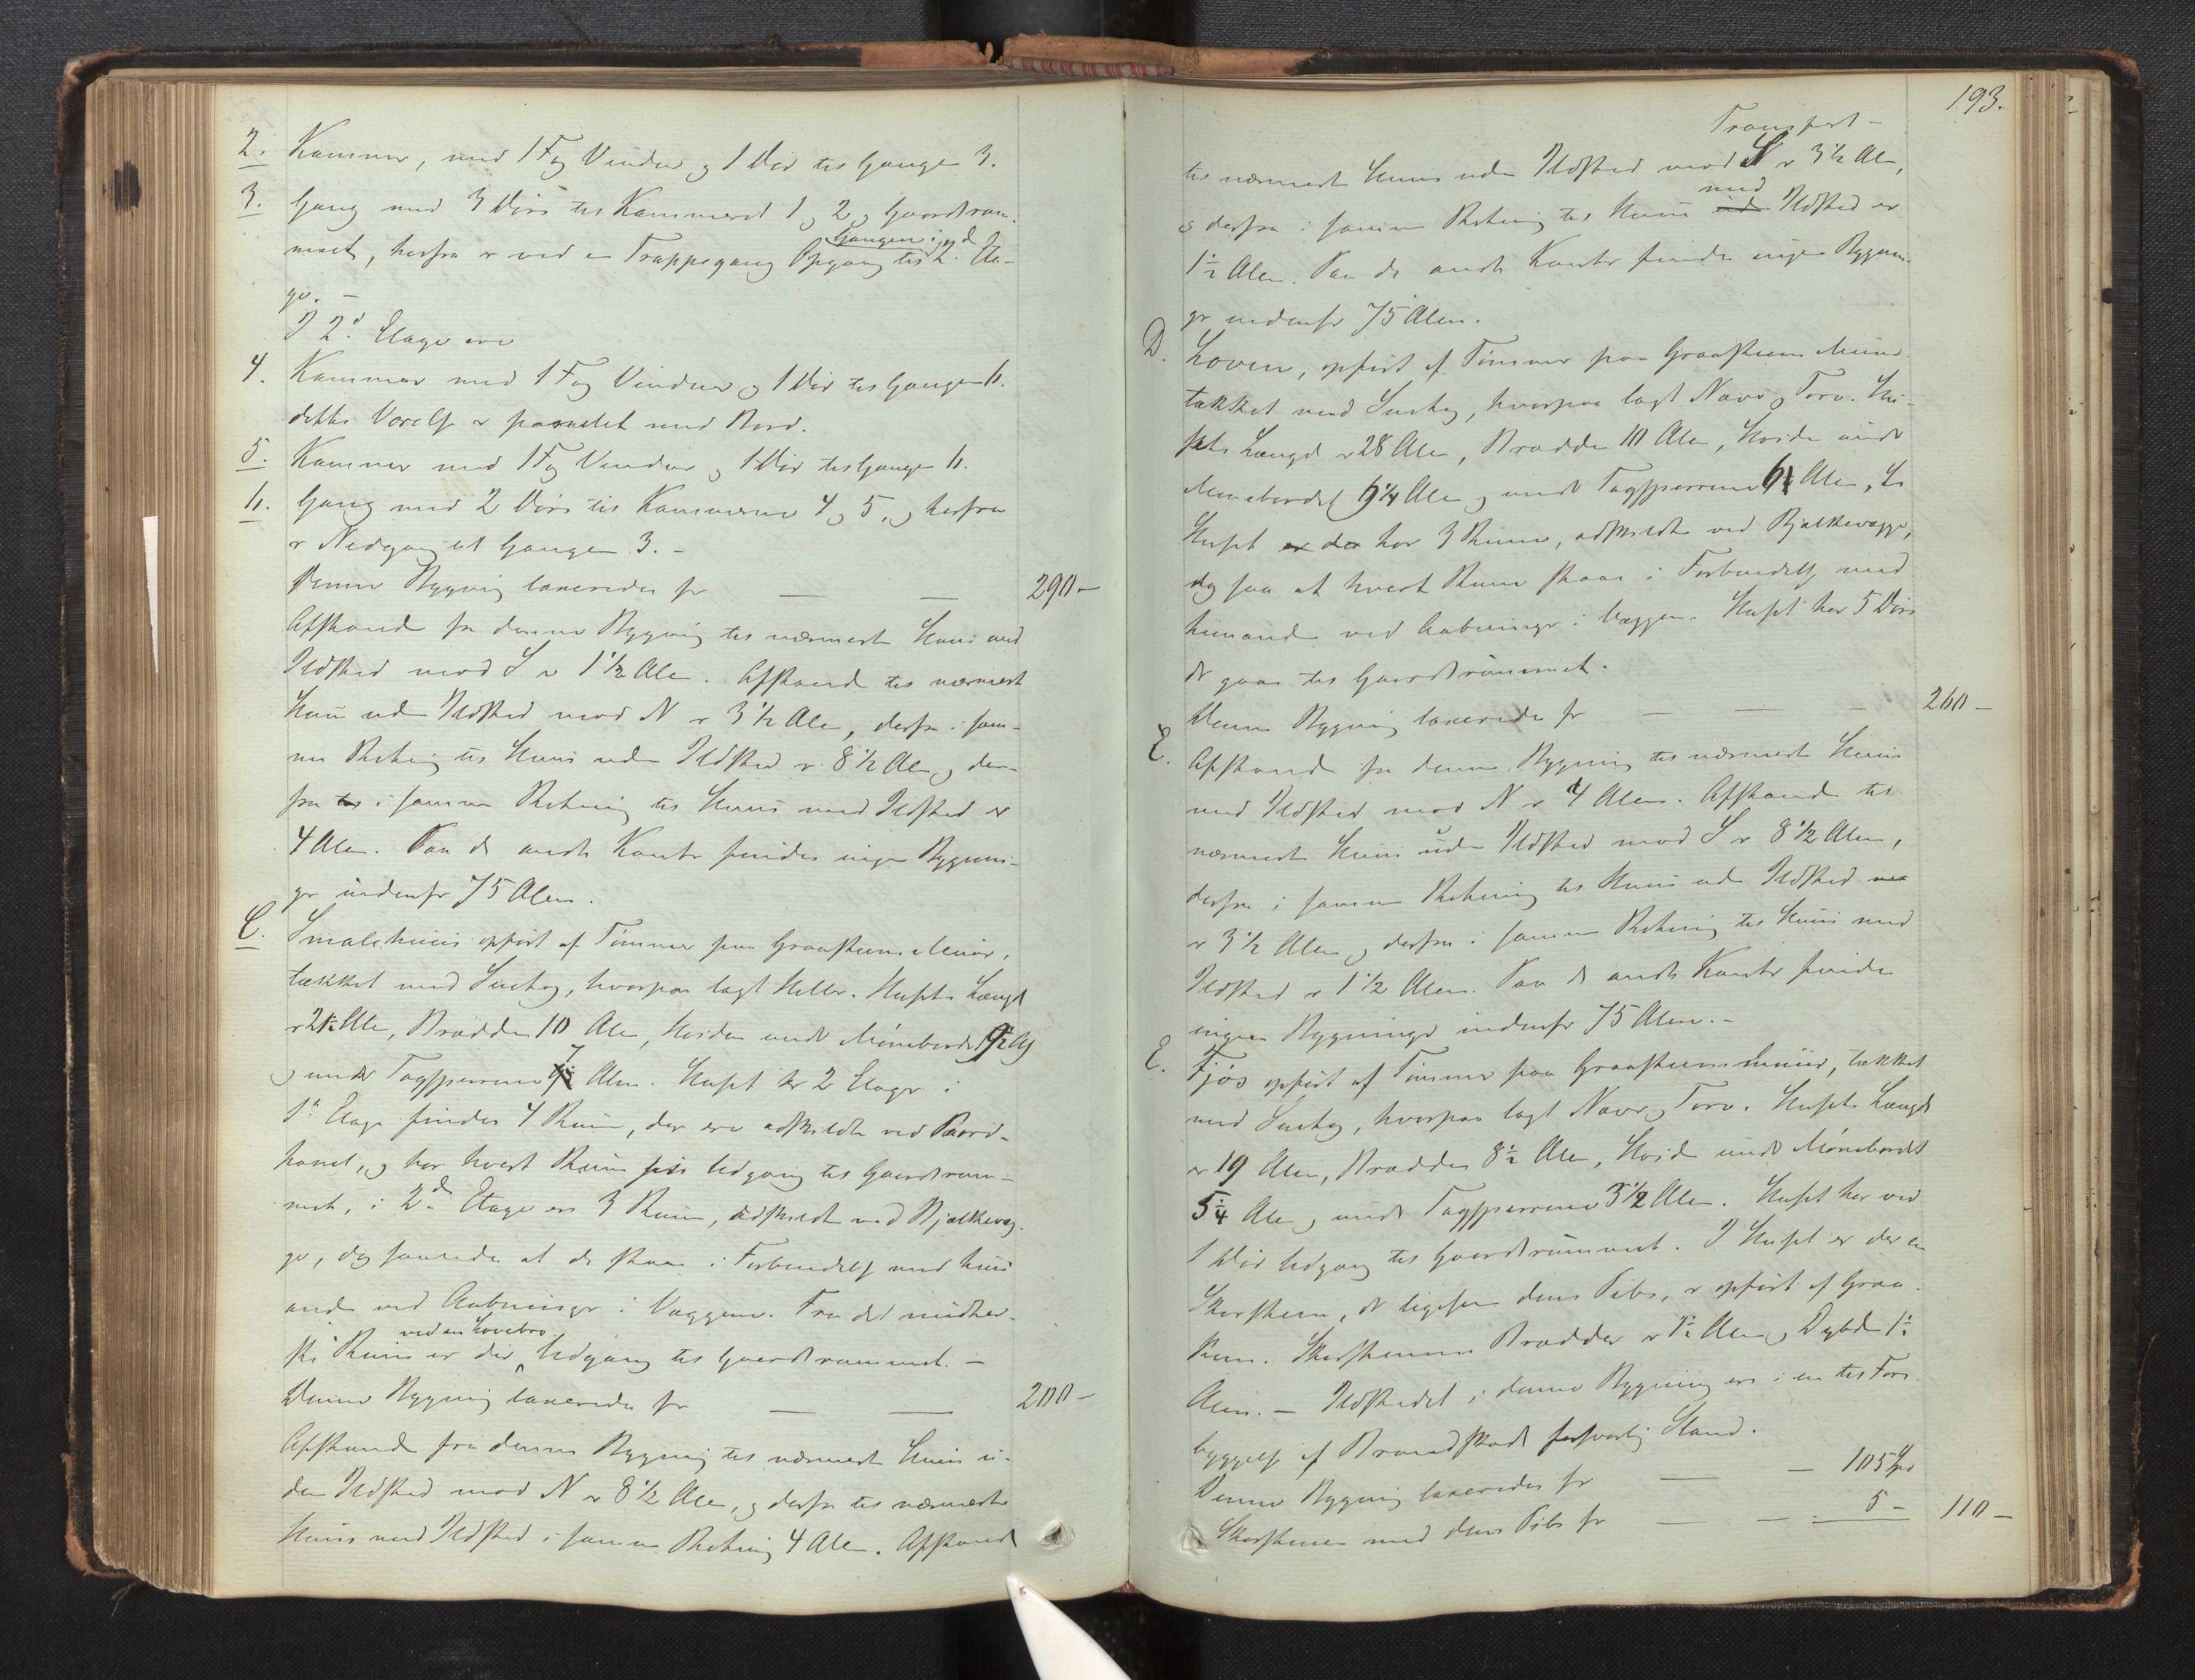 2. Kammer, med 1 Fag Vinduer og 1 Dør til Gangen 3.
3. Gang med 3 Døre til Kammerne 1 og 2 og Gaardsrum-
met, herfra er ved en Trappegang Opgang til Gangen i 2den Eta-
ge. —
I 2d Etage ere
4. Kammer med 1 Fag Vinduer og 1 Dør til Gangen 6.
dette Værelse er panelet med Bord.
5. Kammer med 1 Fag Vinduer og 1 Dør til Gangen 6.
6. Gang med 2 Døre til Kammerne 4 og 5, og herfra
er Nedgang til Gangen 3. —
Denne Bygning taxeredes for — — 290 —
Afstand fra denne Bygning til nærmeste Huus med
Ildsted mod S er 1 1/2 Alen. Afstand til nærmeste
Huus uden Ildsted mod N er 3 1/2 Alen, derfra i sam-
me Retning til Huus uden Ildsted er 8 1/2 Alen og der-
fra i samme Retning til Huus med Ildsted er
4 Alen. Paa de andre Kanter findes ingen Bygnin-
ger indenfor 75 Alen.
C. Smalehuus opført af Tømmer paa Graasteens Muur,
tækket med Sutag, hvorpaa lagt Heller. Husets Længde
er 21 1/2 Alen, Bredde 10 Alen, Høiden under Mønebordet 9 1/2 Al
og under Tagsperrene 7 Alen. Huset har 2 Etager i
1ste Etage findes 4 Rum, der ere adskildte ved Bord-
panel, og har hvert Rum sin Udgang til Gaardsrum-
met, i 2den Etage ere 3 Rum, adskildte ved Bjelkevæg-
ge, dog saaledes at de staae i Forbindelse med hin-
anden ved Aabninger i Væggene. Fra det midter-
ste Rum er der ved en Lovebro Udgang til Gaardsrummet. —
Denne Bygning taxeredes for — — 200 —
Afstand fra denne Bygning til nærmeste Huus u-
den Ildsted mod N er 8 1/2 Alen, og derfra til nærmeste
Huus med Ildsted i samme Retning 4 Alen. Afstand
193.
Transport —
til nærmeste Huus uden Ildsted mod S er 3 1/2 Alen,
og derfra i samme Retning til Huus med Ildsted er
1 1/2 Alen. Paa de andre Kanter findes ingen Bygnin-
ger indenfor 75 Alen.
D. Loven, opført af Tømmer paa Graasteens Muur
tækket med Sutag, hvorpaa lagt Næver og Torv. Hu-
sets Længde er 28 Alen, Bredde 10 Alen, Høiden under
Mønebordet 9 1/4 Alen og under Tagsperrene 6 Alen,
Huset har 3 Rum, adskildte ved Bjelkevægge,
dog saa at hvert Rum staar i Forbindelse med
hinanden ved Aabninger i Væggen. Huset har 5 Døre
der gaar til Gaardsrummet.
Denne Bygning taxeredes for — — — 260 —
E. Afstand fra denne Bygning til nærmeste Huus
med Ildsted mod N er 4 Alen. Afstand til
nærmeste Huus uden Ildsted mod S er 8 1/2 Alen,
derfra i samme Retning til Huus uden Ildsted
er 3 1/2 Alen og derfra i samme Retning til Huus med
Ildsted er 1 1/2 Alen. Paa de andre Kanter findes
ingen Bygninger indenfor 75 Alen. —
E. Fjøs opført af Tømmer paa Graasteens muur, tækket
med Sutag, hvorpaa lagt Næver og Torv. Husets Længde
er 19 Alen, Bredde 8 1/2 Alen, Høide under Mønebordet
5 1/4 Alen og under Tagsperrene 3 1/2 Alen. Huset har ved
1 Dør Udgang til Gaardsrummet. I Huset er der en
Skorsteen, der ligesom dens Pibe, er opført af Graa-
steen. Skorstenens Bredde er 1 1/2 Alen og Dybde 1 1/2
Alen. — Ildstedet i denne Bygning er i en til Fore-
byggelse af Brandskade forsvarlig Stand.
Denne Bygning taxeredes for — — 105 Spd
Skorstenen med dens Pibe for — — 5 — 110 —